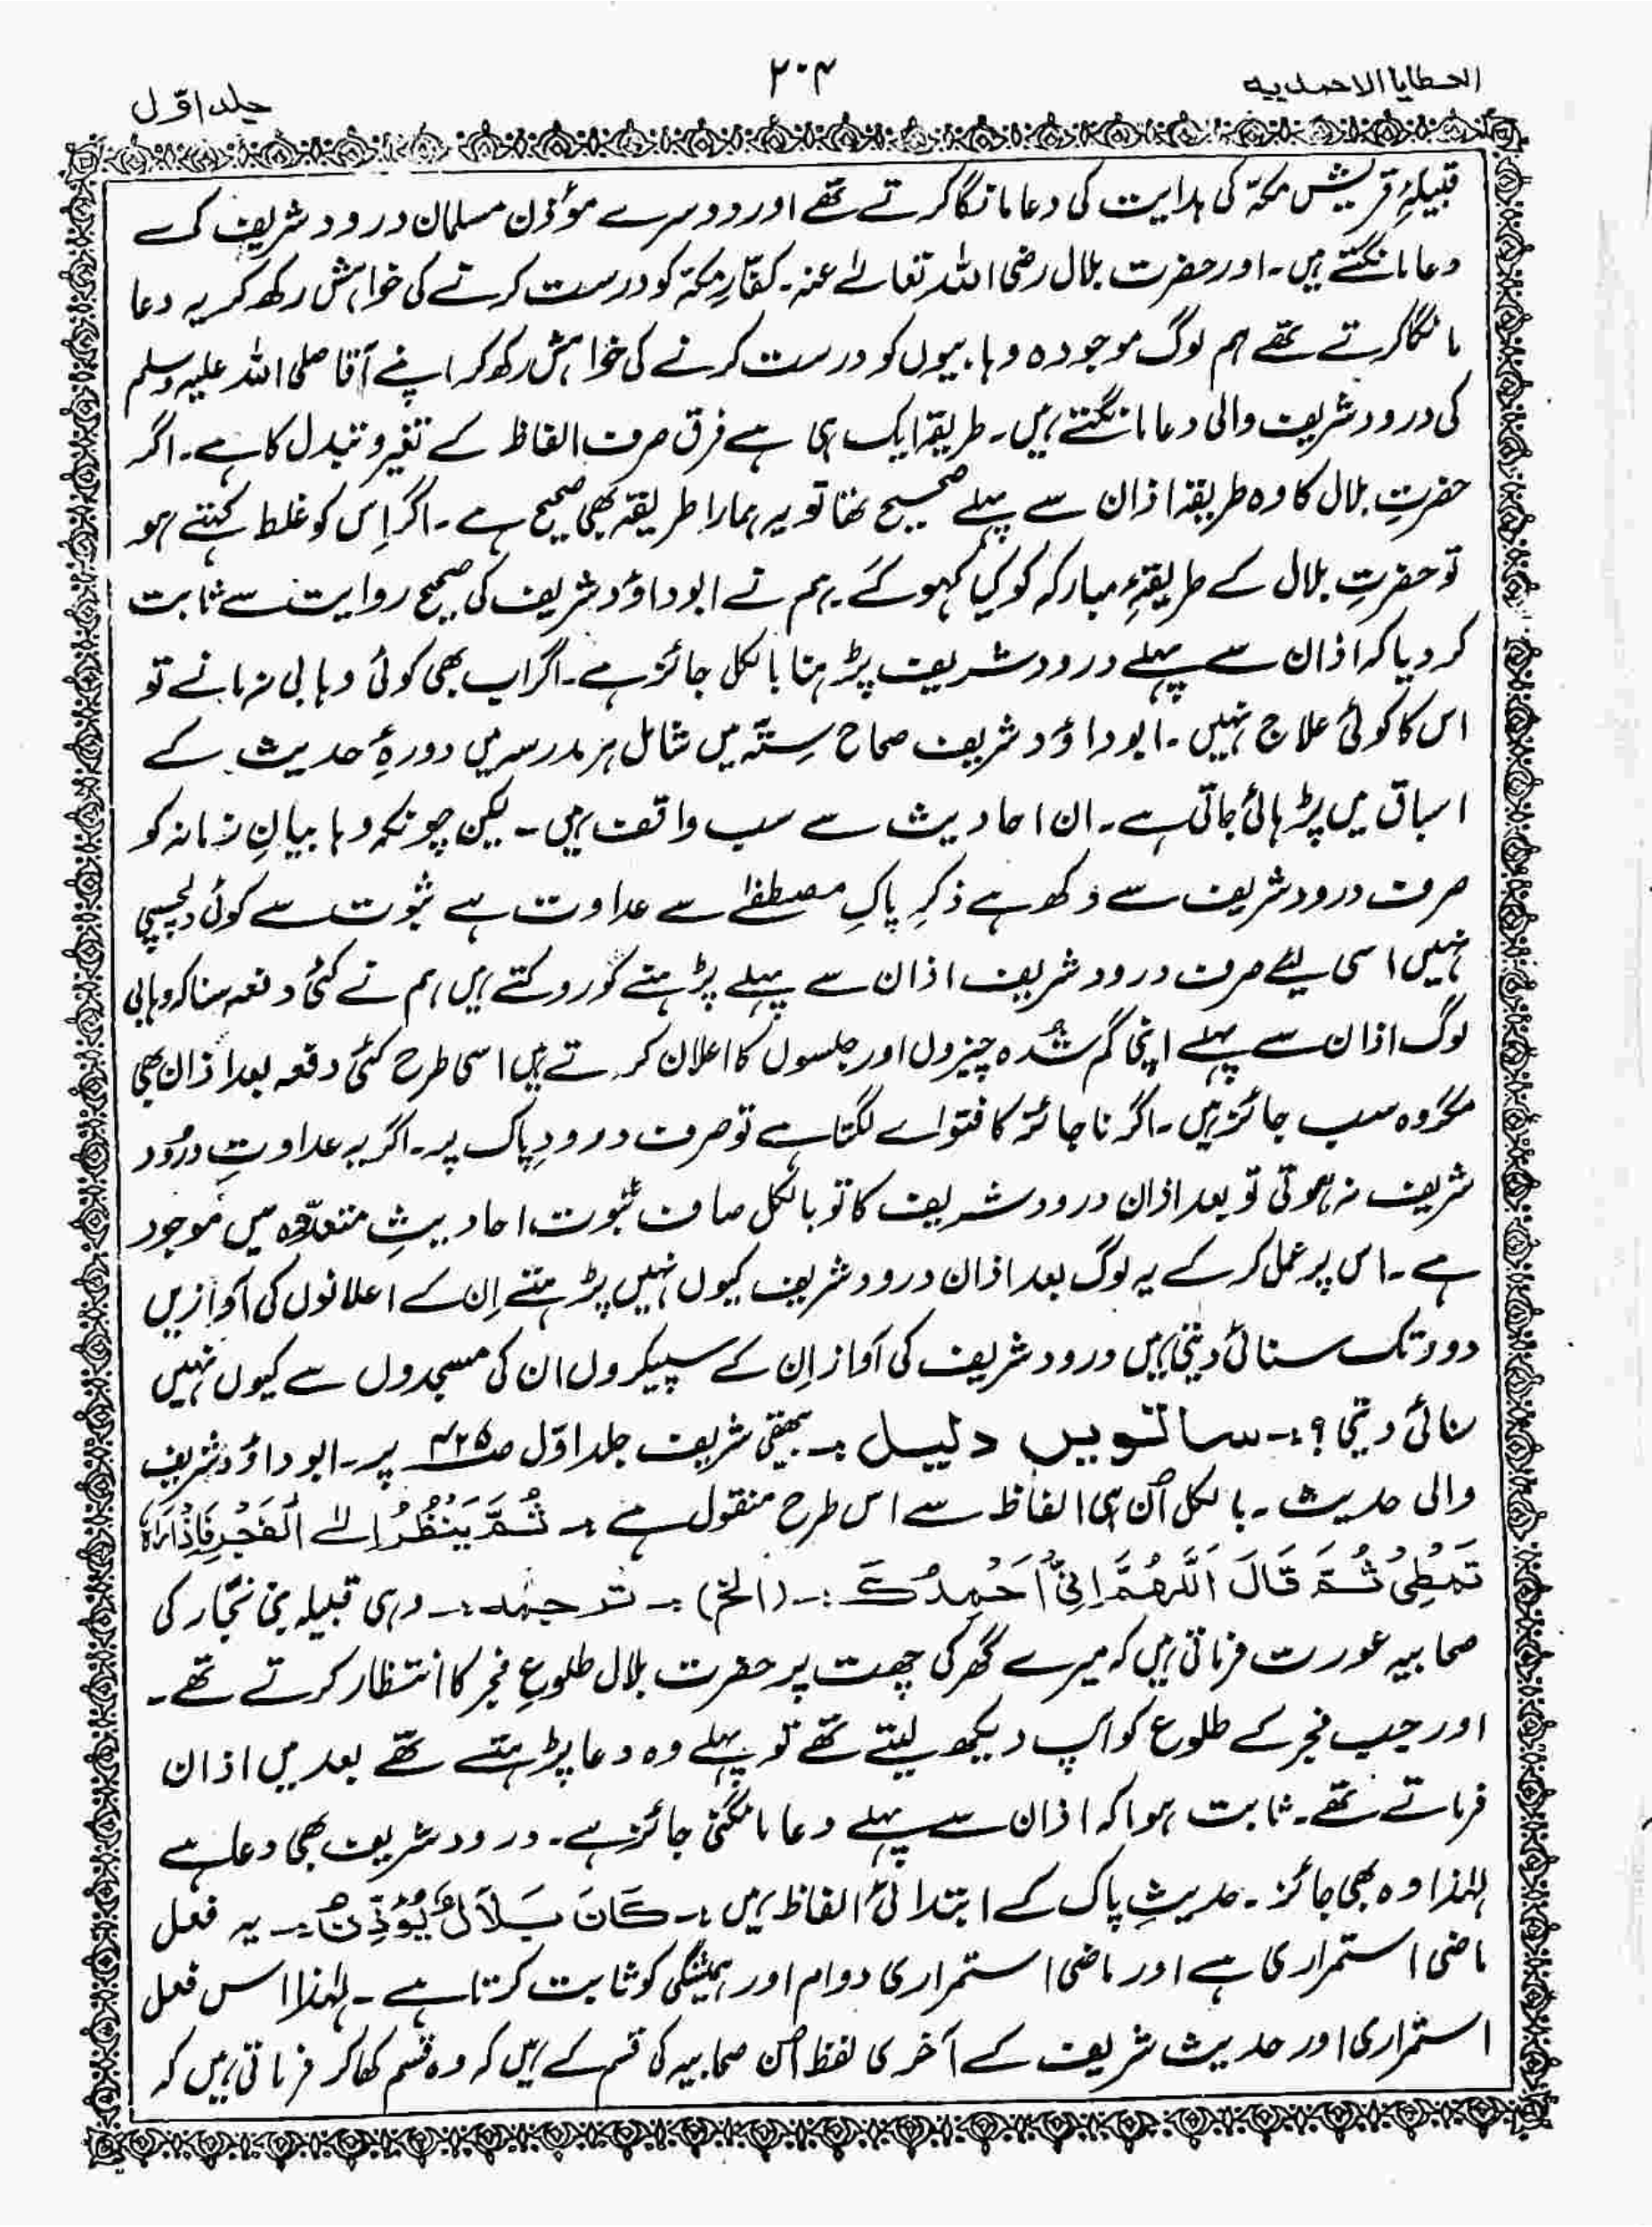 العطایا الاحمدیہ
۲۰۴
جلد اوّل
قبیلۂ قریش مکہ کی ہدایت کی دعا مانگا کرتے تھے اور دوسرے مؤذن مسلمان درود شریف کی
دعا مانگتے ہیں۔ اور حضرت بلال رضی اللہ تعالےٰ عنہ۔ کفّارِ مکہ کو درست کرنے کی خواہش رکھ کر یہ دعا
مانگا کرتے تھے ہم لوگ موجودہ وہابیوں کو درست کرنے کی خواہش رکھ کر اپنے آقا صلی اللہ علیہ وسلم
کی درود شریف والی دعا مانگتے ہیں۔ طریقہ ایک ہی ہے فرق صرف الفاظ کے تغیر و تبدل کا ہے۔ اگر
حضرتِ بلال کا وہ طریقہ اذان سے پہلے صحیح تھا تو یہ ہمارا طریقہ بھی صحیح ہے۔ اگر اِس کو غلط کہتے ہو
تو حضرتِ بلال کے طریقۂ مبارکہ کو کیا کہو گے۔ ہم نے ابو داؤد شریف کی صحیح روایت سے ثابت
کر دیا کہ اذان سے پہلے درود شریف پڑہنا بالکل جائز ہے۔ اگر اب بھی کوئی وہابی نہ مانے تو
اس کا کوئی علاج نہیں۔ ابو داؤد شریف صحاح سِتّہ میں شامل ہر مدرسہ میں دورۂ حدیث کے
اسباق میں پڑہائی جاتی ہے۔ ان احادیث سے سب واقف ہیں۔ لیکن چونکہ وہابیانِ زمانہ کو
صرف درود شریف سے دکھ ہے ذکرِ پاکِ مصطفےٰ سے عداوت ہے ثبوت سے کوئی دلچسپی
نہیں اسی لیئے صرف درود شریف اذان سے پہلے پڑہنے کو روکتے ہیں ہم نے کئی دفعہ سنا کہ وہابی
لوگ اذان سے پہلے اپنی گم شُدہ چیزوں اور جلسوں کا اعلان کرتے ہیں اسی طرح کئی دفعہ بعد اذان بھی
مگر وہ سب جائز ہیں۔ اگر ناجائز کا فتواے لگتا ہے تو صرف درودِ پاک پر۔ اگر یہ عداوتِ درُود
شریف نہ ہوتی تو بعد اذان درود شریف کا تو بالکل صاف ثبوت احادیثِ متعدّدہ میں موجود
ہے۔ اس پر عمل کر کے یہ لوگ بعد اذان درود شریف کیوں نہیں پڑہتے اِن کے اعلانوں کی آوازیں
دور تک سنائی دیتی ہیں درود شریف کی آواز اِن کے سپیکروں ان کی مسجدوں سے کیوں نہیں
سنائی دیتی؟:۔ ساتویں دلیل :۔ بیہقی شریف جلد اوّل صـ۴۲۵ پر۔ ابو داؤد شریف
والی حدیث۔ بالکل اُن ہی الفاظ سے اس طرح منقول ہے :۔ ثُمَّ يَنْظُرُ اِلیٰ الْفَجْرِ فَاِذَا رَاٰهُ
تَمَطّٰى ثُمَّ قَالَ اَللّٰهُمَّ اِنِّىْ اَحْمِدُكَ :۔ (الخ) :۔ ترجمہ :۔ وہی قبیلہ بنی نجّار کی
صحابیہ عورت فرماتی ہیں کہ میرے گھر کی چھت پر حضرت بلال طلوعِ فجر کا انتظار کرتے تھے۔
اور جب فجر کے طلوع کو آپ دیکھ لیتے تھے تو پہلے وہ دعا پڑہتے تھے بعد میں اذان
فرماتے تھے۔ ثابت ہوا کہ اذان سے پہلے دعا مانگنی جائز ہے۔ درود شریف بھی دعا ہے
لہٰذا وہ بھی جائز۔ حدیثِ پاک کے ابتدائی الفاظ ہیں :۔ كَانَ بَلَالٌ يُؤَذِّنُ :۔ یہ فعل
ماضی استمراری ہے اور ماضی استمراری دوام اور ہمیشگی کو ثابت کرتا ہے۔ لہٰذا اس فعل
استمراری اور حدیث شریف کے آخری لفظ اُس صحابیہ کی قسم کے ہیں کہ وہ قسم کھا کر فرماتی ہیں کہ